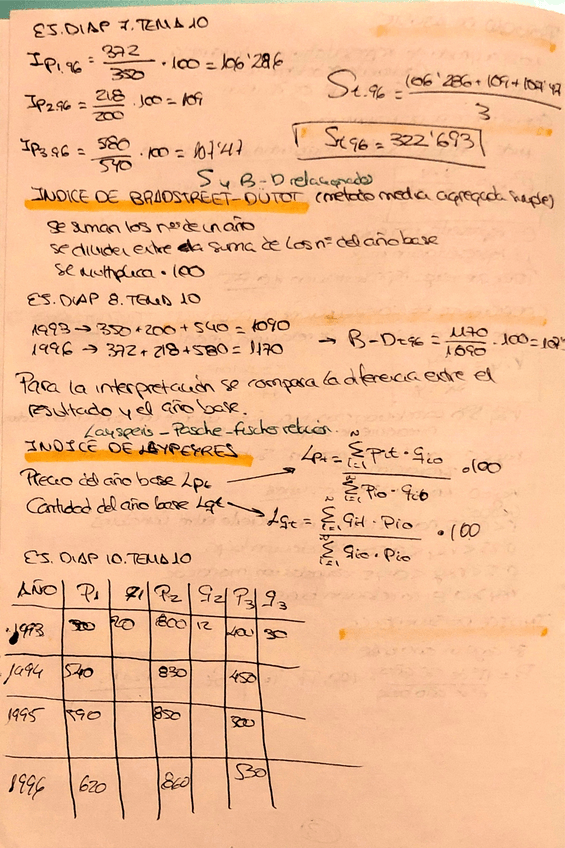 EJ.DIAP 7.TEMA 10
IP1.96 = 372/350 · 100 = 106'286
IP2.96 = 218/200 · 100 = 109
IP3.96 = 580/540 · 100 = 107'47
St.96 = 106'286+109+107'47/3
St96 = 322'693
S y B-D relacionados
INDICE DE BRADSTREET-DUTOT (metodo media agregada simple)
se suman los nos de un año
se dividen entre la suma de los nos del año base
se multiplica · 100
EJ.DIAP 8.TEMA 10
1993 → 350+200+540 = 1090
1996 → 372+218+580 = 1170
→ B-Dt96 = 1170/1090 · 100 = 107
Para la interpretación se compara la diferencia entre el
resultado y el año base.
Layspeirs - Pasche - Fischer relación.
INDICE DE LAYPEYRES
Precio del año base Lpt → Lpt = ∑ᴺᵢ₌₁ pit · qio / ∑ᴺᵢ₌₁ Pio · qio · 100
Cantidad del año base Lqt → Lqt = ∑ᴺᵢ₌₁ qit · pio / ∑ᴺᵢ₌₁ qio · pio · 100
EJ. DIAP 10.TEMA 10
AÑO P1 q1 P2 q2 P3 q3
1993 20 800 12 400 30
1994 540 830 450
1995 590 850 300
1996 620 860 530